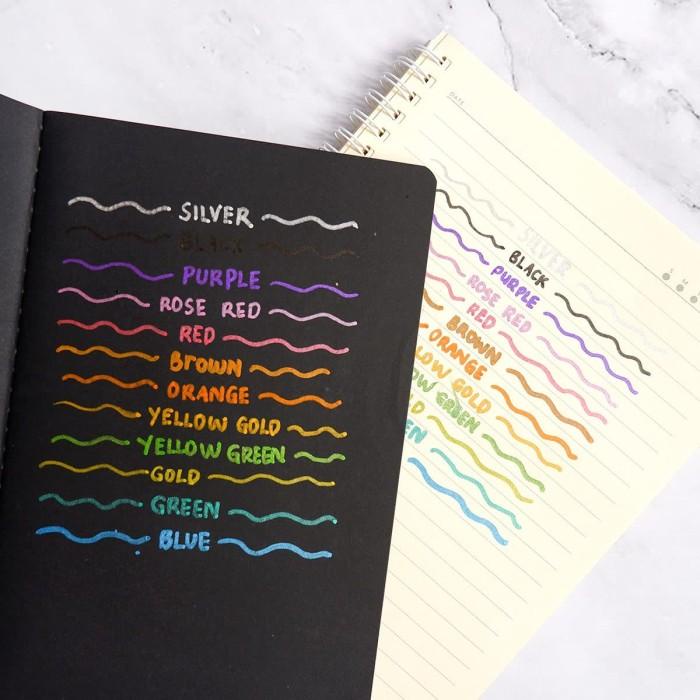 SILVER
BLACK
PURPLE
ROSE RED
RED
BROWN
ORANGE
YELLOW GOLD
YELLOW GREEN
GOLD
GREEN
BLUE
DATE
SILVER
BLACK
PURPLE
ROSE RED
RED
BROWN
ORANGE
LOW GOLD
OW GREEN
LD
EN